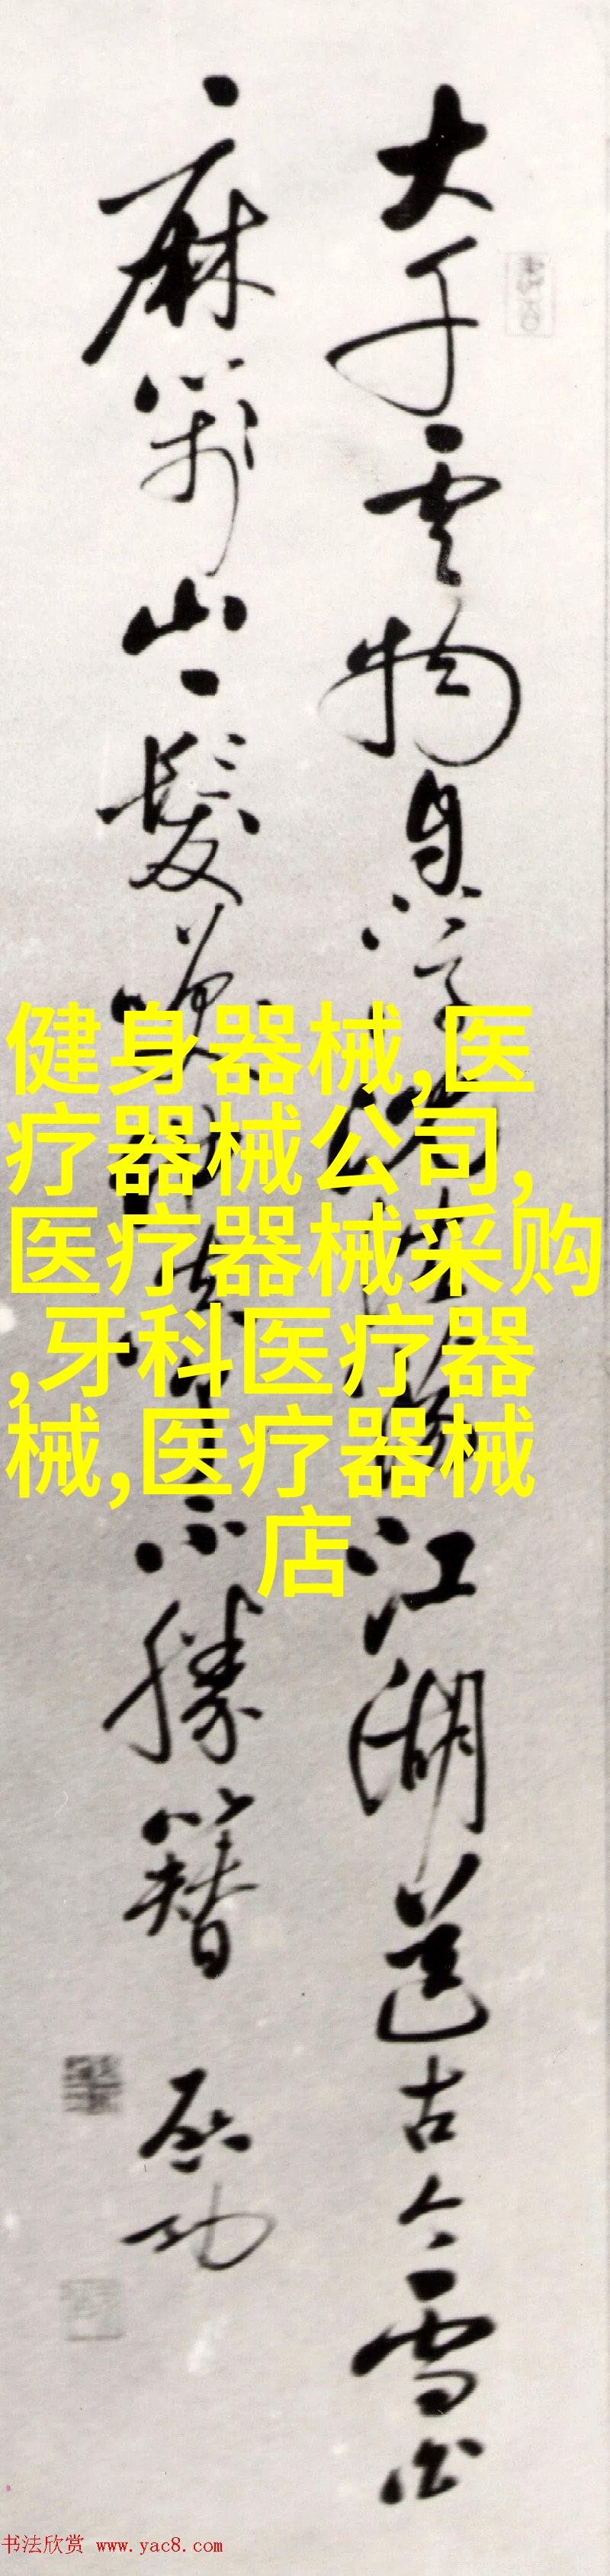 大千雲物自浮沉江湖送古今雪
山一髮不勝簪
啟功
健身器械,医
疗器械公司,
医疗器械采购
,牙科医疗器
械,医疗器械
店
书法欣赏 www.yac8.com